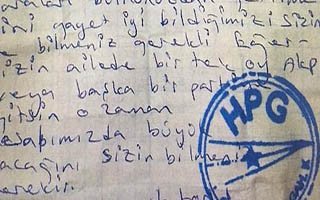 ini gayet iyi bildiğimizi sizin
bilmeniz gerekli Eğer
izin ailede bir tek oy AKP
veya başka bir
gitsin o zaman
esapımızda büyü
acağını sizin
erekir.
HPG